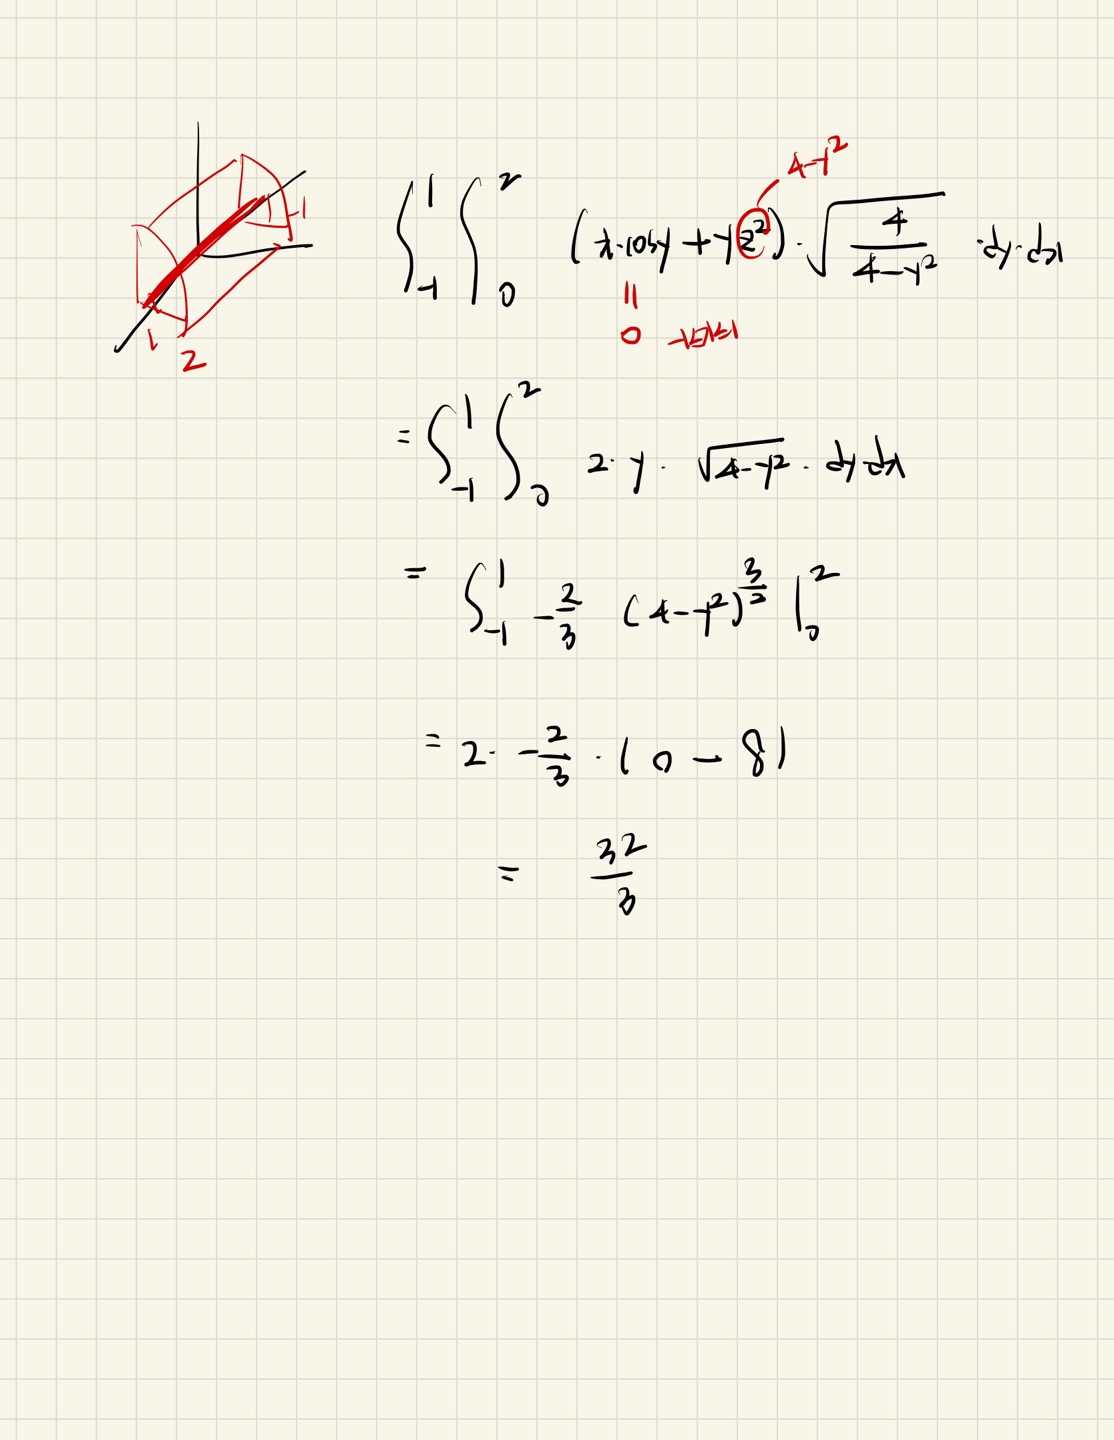 4-y²
∫_{-1}^{1} ∫_{0}^{2} (x·cosy + yz²)·√(4/(4-y²)) ·dy·dx
||
0 -1≤x≤1
-1
1
2
= ∫_{-1}^{1} ∫_{0}^{2} 2·y·√(4-y²)·dy dx
= ∫_{-1}^{1} -2/3 (4-y²)^{3/2} |_{0}^{2}
= 2·-2/3·(0-8)
= 32/3